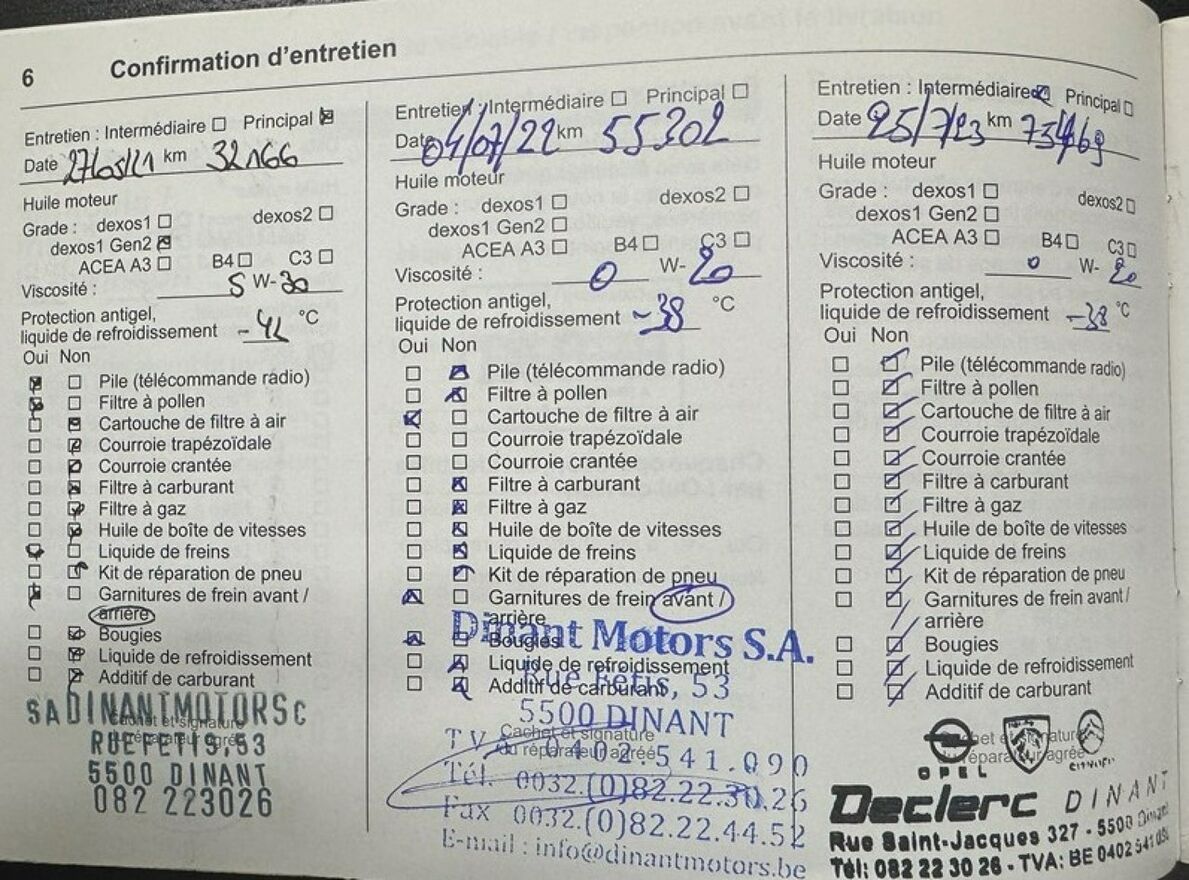 6 Confirmation d'entretien
Entretien : Intermédiaire Principal
Date 27/05/21 km 32166
Huile moteur
Grade : dexos1 dexos2
dexos1 Gen2
ACEA A3 B4 C3
Viscosité : 5 W-30
Protection antigel,
liquide de refroidissement -42 °C
Oui Non
Pile (télécommande radio)
Filtre à pollen
Cartouche de filtre à air
Courroie trapézoïdale
Courroie crantée
Filtre à carburant
Filtre à gaz
Huile de boîte de vitesses
Liquide de freins
Kit de réparation de pneu
Garnitures de frein avant /
arrière
Bougies
Liquide de refroidissement
Additif de carburant
SA DINANTMOTORSC
Cachet et signature
du réparateur agréé
RUE FETIS, 53
5500 DINANT
082 223026
Entretien : Intermédiaire Principal
Date 04/07/22 km 55302
Huile moteur
Grade : dexos1 dexos2
dexos1 Gen2
ACEA A3 B4 C3
Viscosité : 0 W-20
Protection antigel,
liquide de refroidissement -38 °C
Oui Non
Pile (télécommande radio)
Filtre à pollen
Cartouche de filtre à air
Courroie trapézoïdale
Courroie crantée
Filtre à carburant
Filtre à gaz
Huile de boîte de vitesses
Liquide de freins
Kit de réparation de pneu
Garnitures de frein avant /
arrière
Dinant Motors S.A.
Bougies
Liquide de refroidissement
Rue Fétis, 53
Additif de carburant
5500 DINANT
Cachet et signature
du réparateur agréé
TV 0402.541.090
Tél. 0032.(0)82.22.30.26
Fax 0032.(0)82.22.44.52
E-mail : info@dinantmotors.be
Entretien : Intermédiaire Principal
Date 25/7/23 km
Huile moteur
Grade : dexos1 dexos2
dexos1 Gen2
ACEA A3 B4 C3
Viscosité : 0 W-20
Protection antigel,
liquide de refroidissement -38 °C
Oui Non
Pile (télécommande radio)
Filtre à pollen
Cartouche de filtre à air
Courroie trapézoïdale
Courroie crantée
Filtre à carburant
Filtre à gaz
Huile de boîte de vitesses
Liquide de freins
Kit de réparation de pneu
Garnitures de frein avant /
arrière
Bougies
Liquide de refroidissement
Additif de carburant
Cachet et signature
du réparateur agréé
OPEL CITROËN
Declerc DINANT
Rue Saint-Jacques 327 - 5500 Dinant
Tél: 082 22 30 26 - TVA: BE 0402 541 090